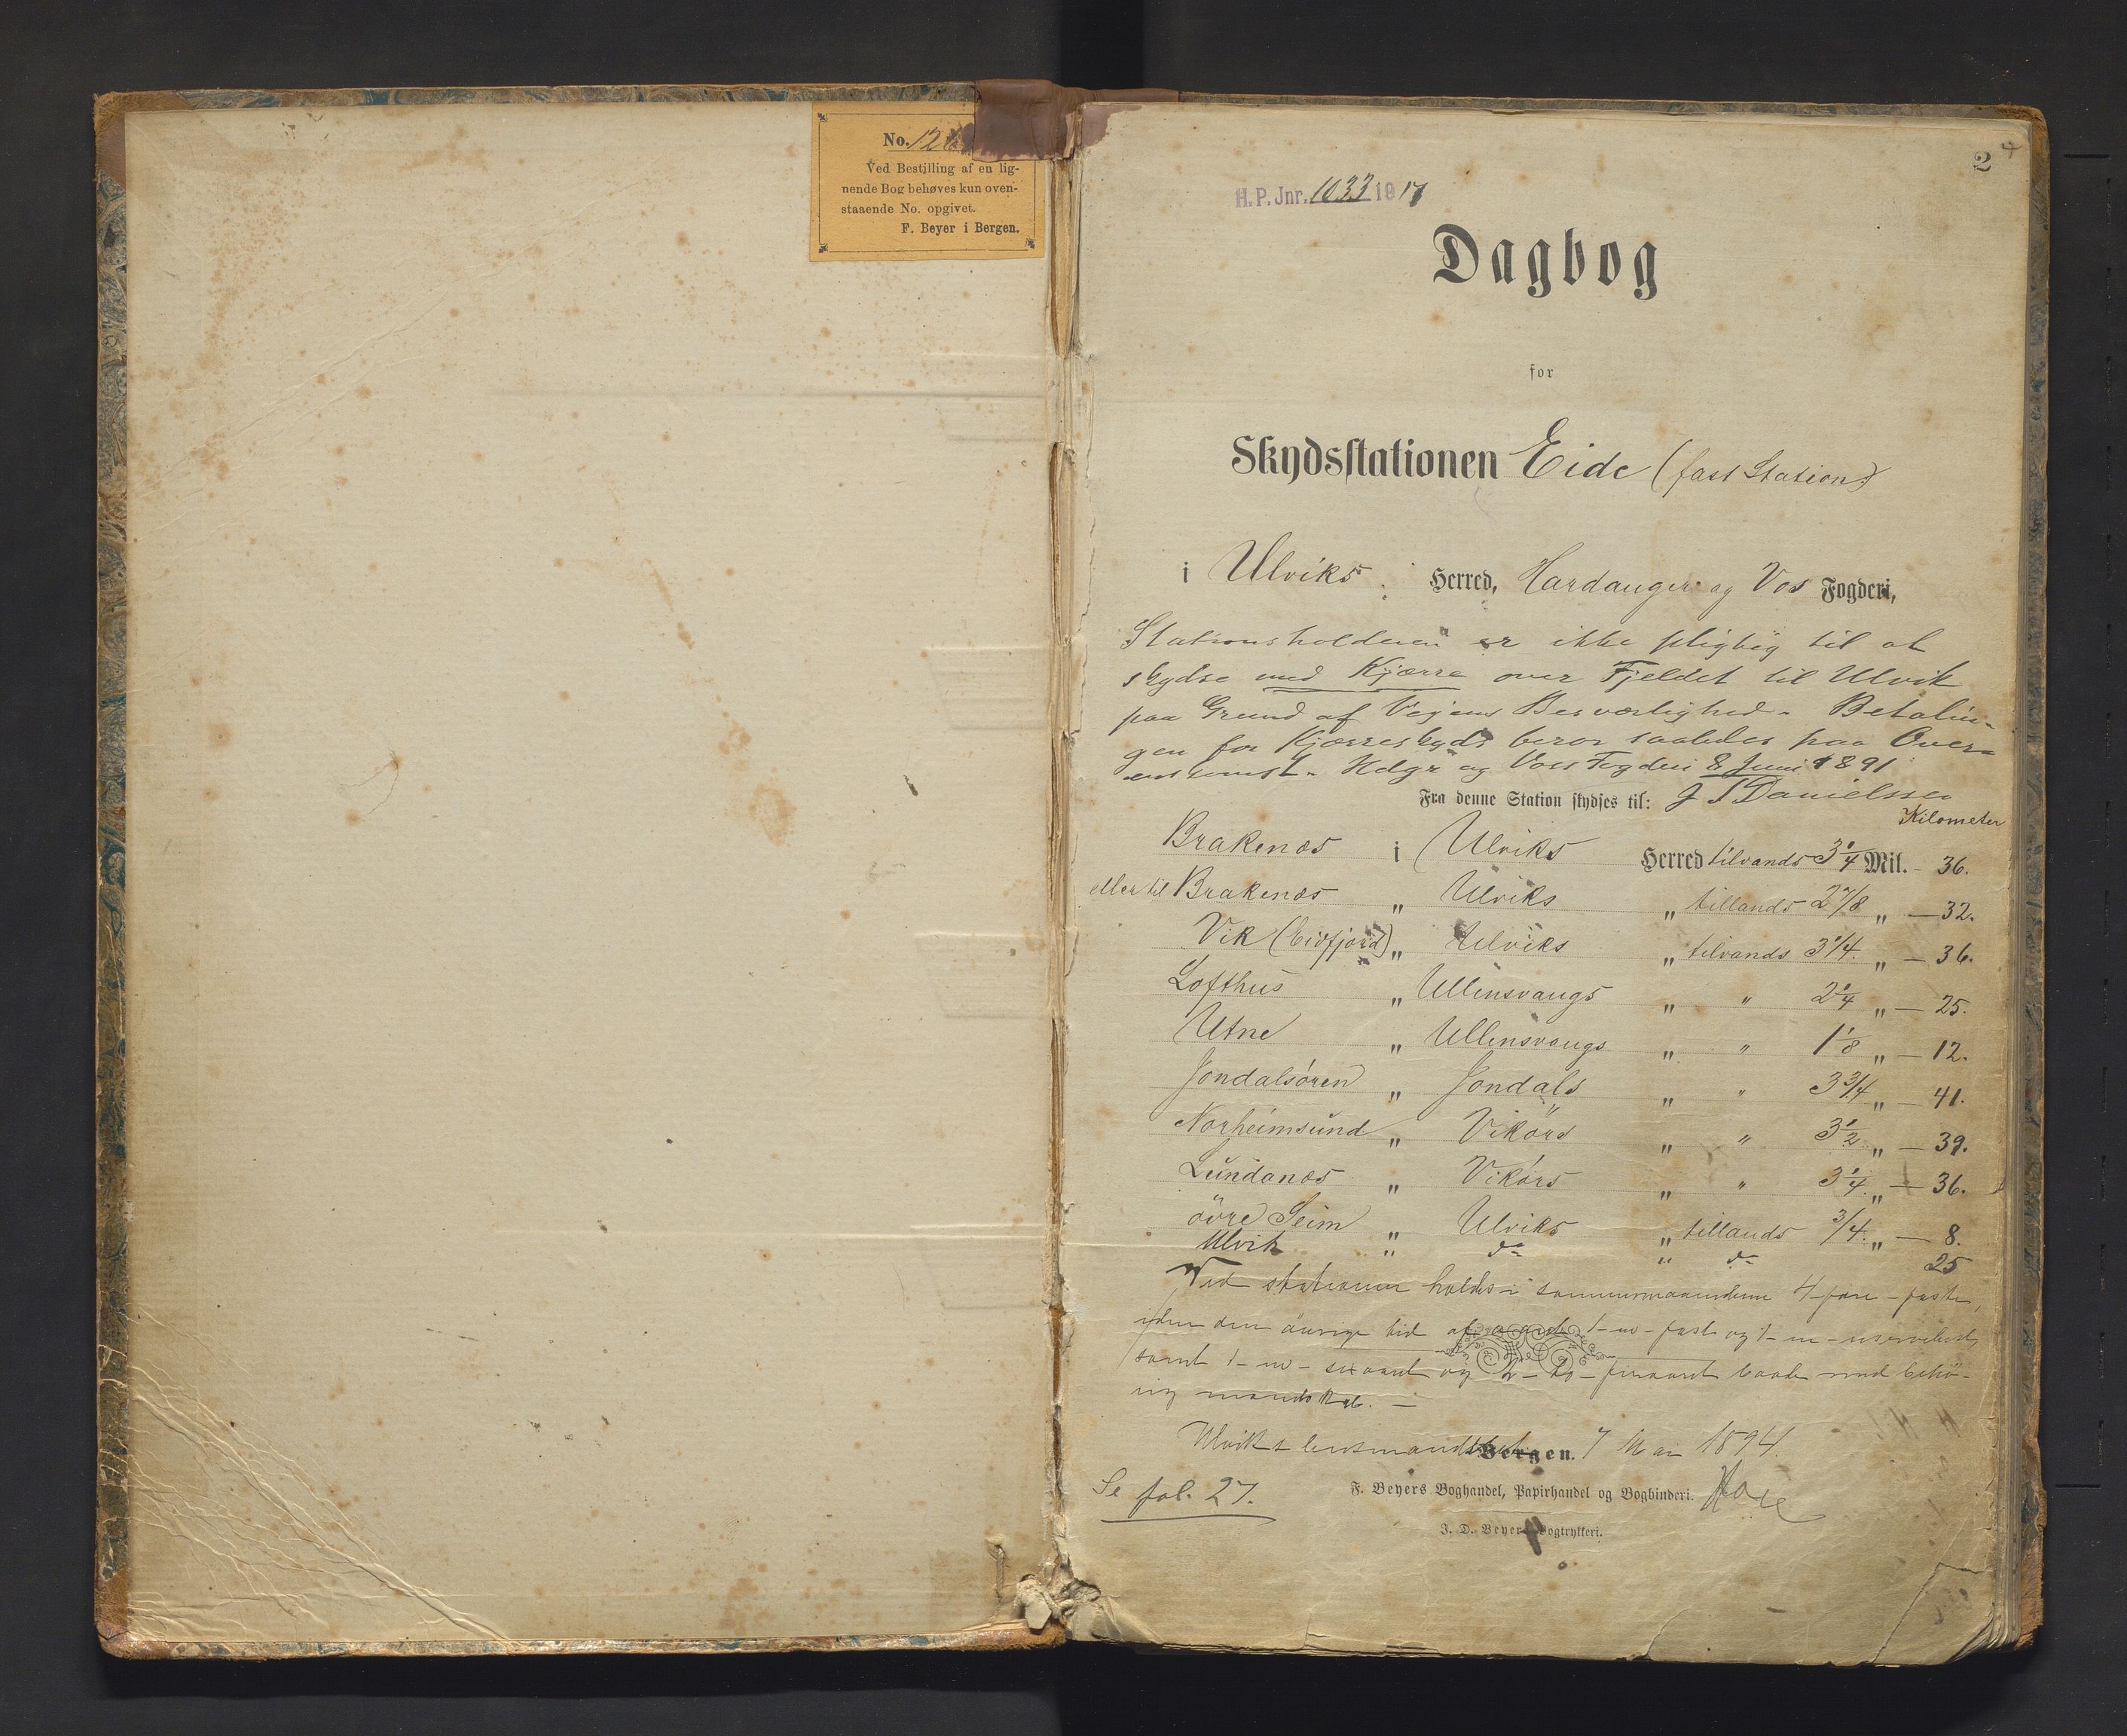 No. 126
Ved Bestilling af en lig-
nende Bog behøves kun oven-
staaende No. opgivet.
F. Beyer i Bergen.
2
H. P. Jnr. 1033 1917
Dagbog
for
Skydsstationen Eide (fast Station)
i Ulviks Herred, Hardanger og Vos Fogderi,
Stationsholderen er ikke pligtig til at
skydse med Kjærre over Fjeldet til Ulvik
paa Grund af Vejens Besværlighed. Betalin-
gen for Kjærreskyds beror saaledes paa Over-
enskomst. Hdgr og Voss Fogderi 8 Juni 1891
Fra denne Station skydses til: J Danielssen
Kilometer
Brakenæs i Ulviks Herred tilvands 3 1/4 Mil. - 36.
eller til Brakenæs „ Ulviks „ tillands 2 7/8 „ — 32.
Vik (Eidfjord) „ Ulviks „ tilvands 3 1/4 „ — 36.
Lofthus „ Ullensvangs „ " 2 1/4 „ — 25.
Utne „ Ullensvangs „ " 1 1/8 „ — 12.
Jondalsøren „ Jondals „ " 3 3/4 „ — 41.
Norheimsund „ Vikørs „ " 3 1/2 „ — 39.
Lundanæs „ Vikørs „ " 3 1/4 „ — 36.
øvre Seim „ Ulviks „ tillands 3/4 „ — 8.
Ulvik „ do „ do 25
Ved stationen holdes i sommermaanederne 4-fire-faste,
uden den øvrige tid af aaret 1-en-fast og 1-en-reserve
samt 1-en- og 2-to- baade med behø-
rig mandskab. —
Ulviks lensmand 7 Mai 1894.
Bergen.
Se fol. 27.
F. Beyers Boghandel, Papirhandel og Bogbinderi.
J. D. Beyers Bogtrykkeri.